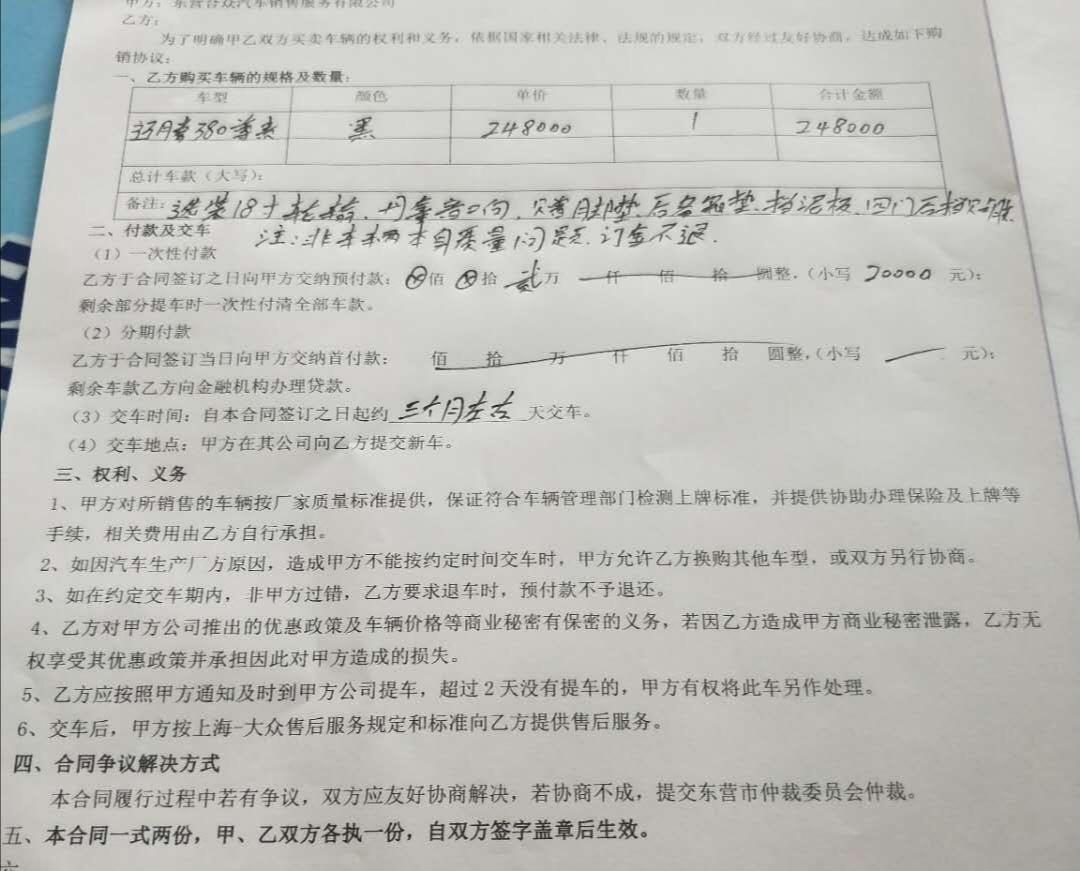 甲方：东营合众汽车销售服务有限公司
乙方：
为了明确甲乙双方买卖车辆的权利和义务，依据国家相关法律、法规的规定，双方经过友好协商，达成如下购
销协议：
一、乙方购买车辆的规格及数量：
车型 颜色 单价 数量 合计金额
380 黑 248000 1 248000
总计车款（大写）：
备注：选装18寸轮毂、脚垫、后备箱垫、挡泥板、四门
注：非车辆本身质量问题、订金不退.
二、付款及交车
（1）一次性付款
乙方于合同签订之日向甲方交纳预付款：⊗佰⊗拾贰万 仟 佰 拾 圆整，（小写 20000 元）；
剩余部分提车时一次性付清全部车款。
（2）分期付款
乙方于合同签订当日向甲方交纳首付款： 佰 拾 万 仟 佰 拾 圆整，（小写 元）；
剩余车款乙方向金融机构办理贷款。
（3）交车时间：自本合同签订之日起约三个月左右天交车。
（4）交车地点：甲方在其公司向乙方提交新车。
三、权利、义务
1、甲方对所销售的车辆按厂家质量标准提供，保证符合车辆管理部门检测上牌标准，并提供协助办理保险及上牌等
手续，相关费用由乙方自行承担。
2、如因汽车生产厂方原因，造成甲方不能按约定时间交车时，甲方允许乙方换购其他车型，或双方另行协商。
3、如在约定交车期内，非甲方过错，乙方要求退车时，预付款不予退还。
4、乙方对甲方公司推出的优惠政策及车辆价格等商业秘密有保密的义务，若因乙方造成甲方商业秘密泄露，乙方无
权享受其优惠政策并承担因此对甲方造成的损失。
5、乙方应按照甲方通知及时到甲方公司提车，超过2天没有提车的，甲方有权将此车另作处理。
6、交车后，甲方按上海-大众售后服务规定和标准向乙方提供售后服务。
四、合同争议解决方式
本合同履行过程中若有争议，双方应友好协商解决，若协商不成，提交东营市仲裁委员会仲裁。
五、本合同一式两份，甲、乙双方各执一份，自双方签字盖章后生效。